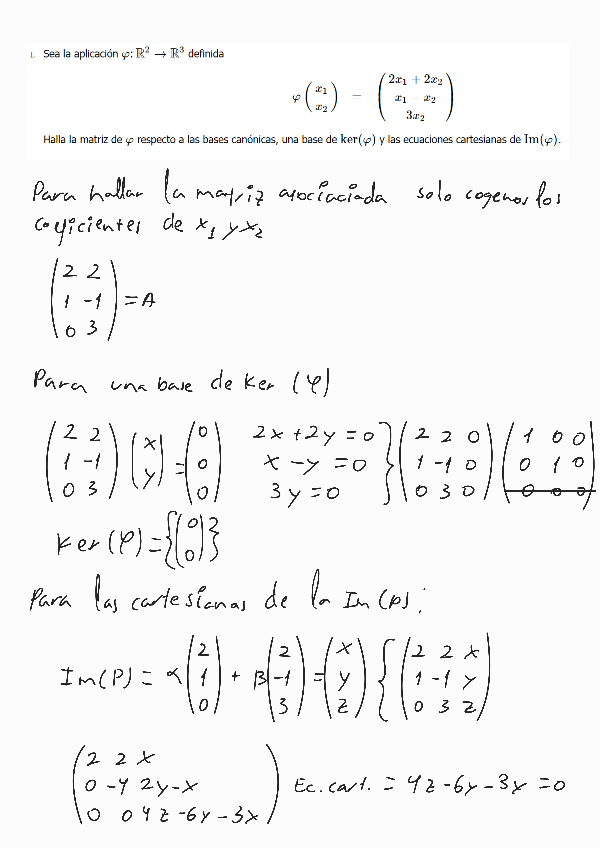 1. Sea la aplicación φ: ℝ² → ℝ³ definida
φ(x₁ x₂) = (2x₁ + 2x₂
x₁ − x₂
3x₂)
Halla la matriz de φ respecto a las bases canónicas, una base de ker(φ) y las ecuaciones cartesianas de Im(φ).
Para hallar la matriz asociaciada solo cogemos los
coeficientes de x₁ y x₂
(2 2
1 -1
0 3) = A
Para una base de Ker (φ)
(2 2; 1 -1; 0 3) (x; y) = (0; 0; 0) 2x+2y=0 x-y=0 3y=0 } (2 2 0; 1 -1 0; 0 3 0) (1 0 0; 0 1 0; 0 0 0)
Ker(φ)={(0; 0)}
Para las cartesianas de la Im(φ):
Im(φ)= α(2; 1; 0) + β(2; -1; 3) = (x; y; z) { (2 2 x; 1 -1 y; 0 3 z)
(2 2 x; 0 -4 2y-x; 0 0 4z-6y-3x) Ec.cart. = 4z-6y-3x=0